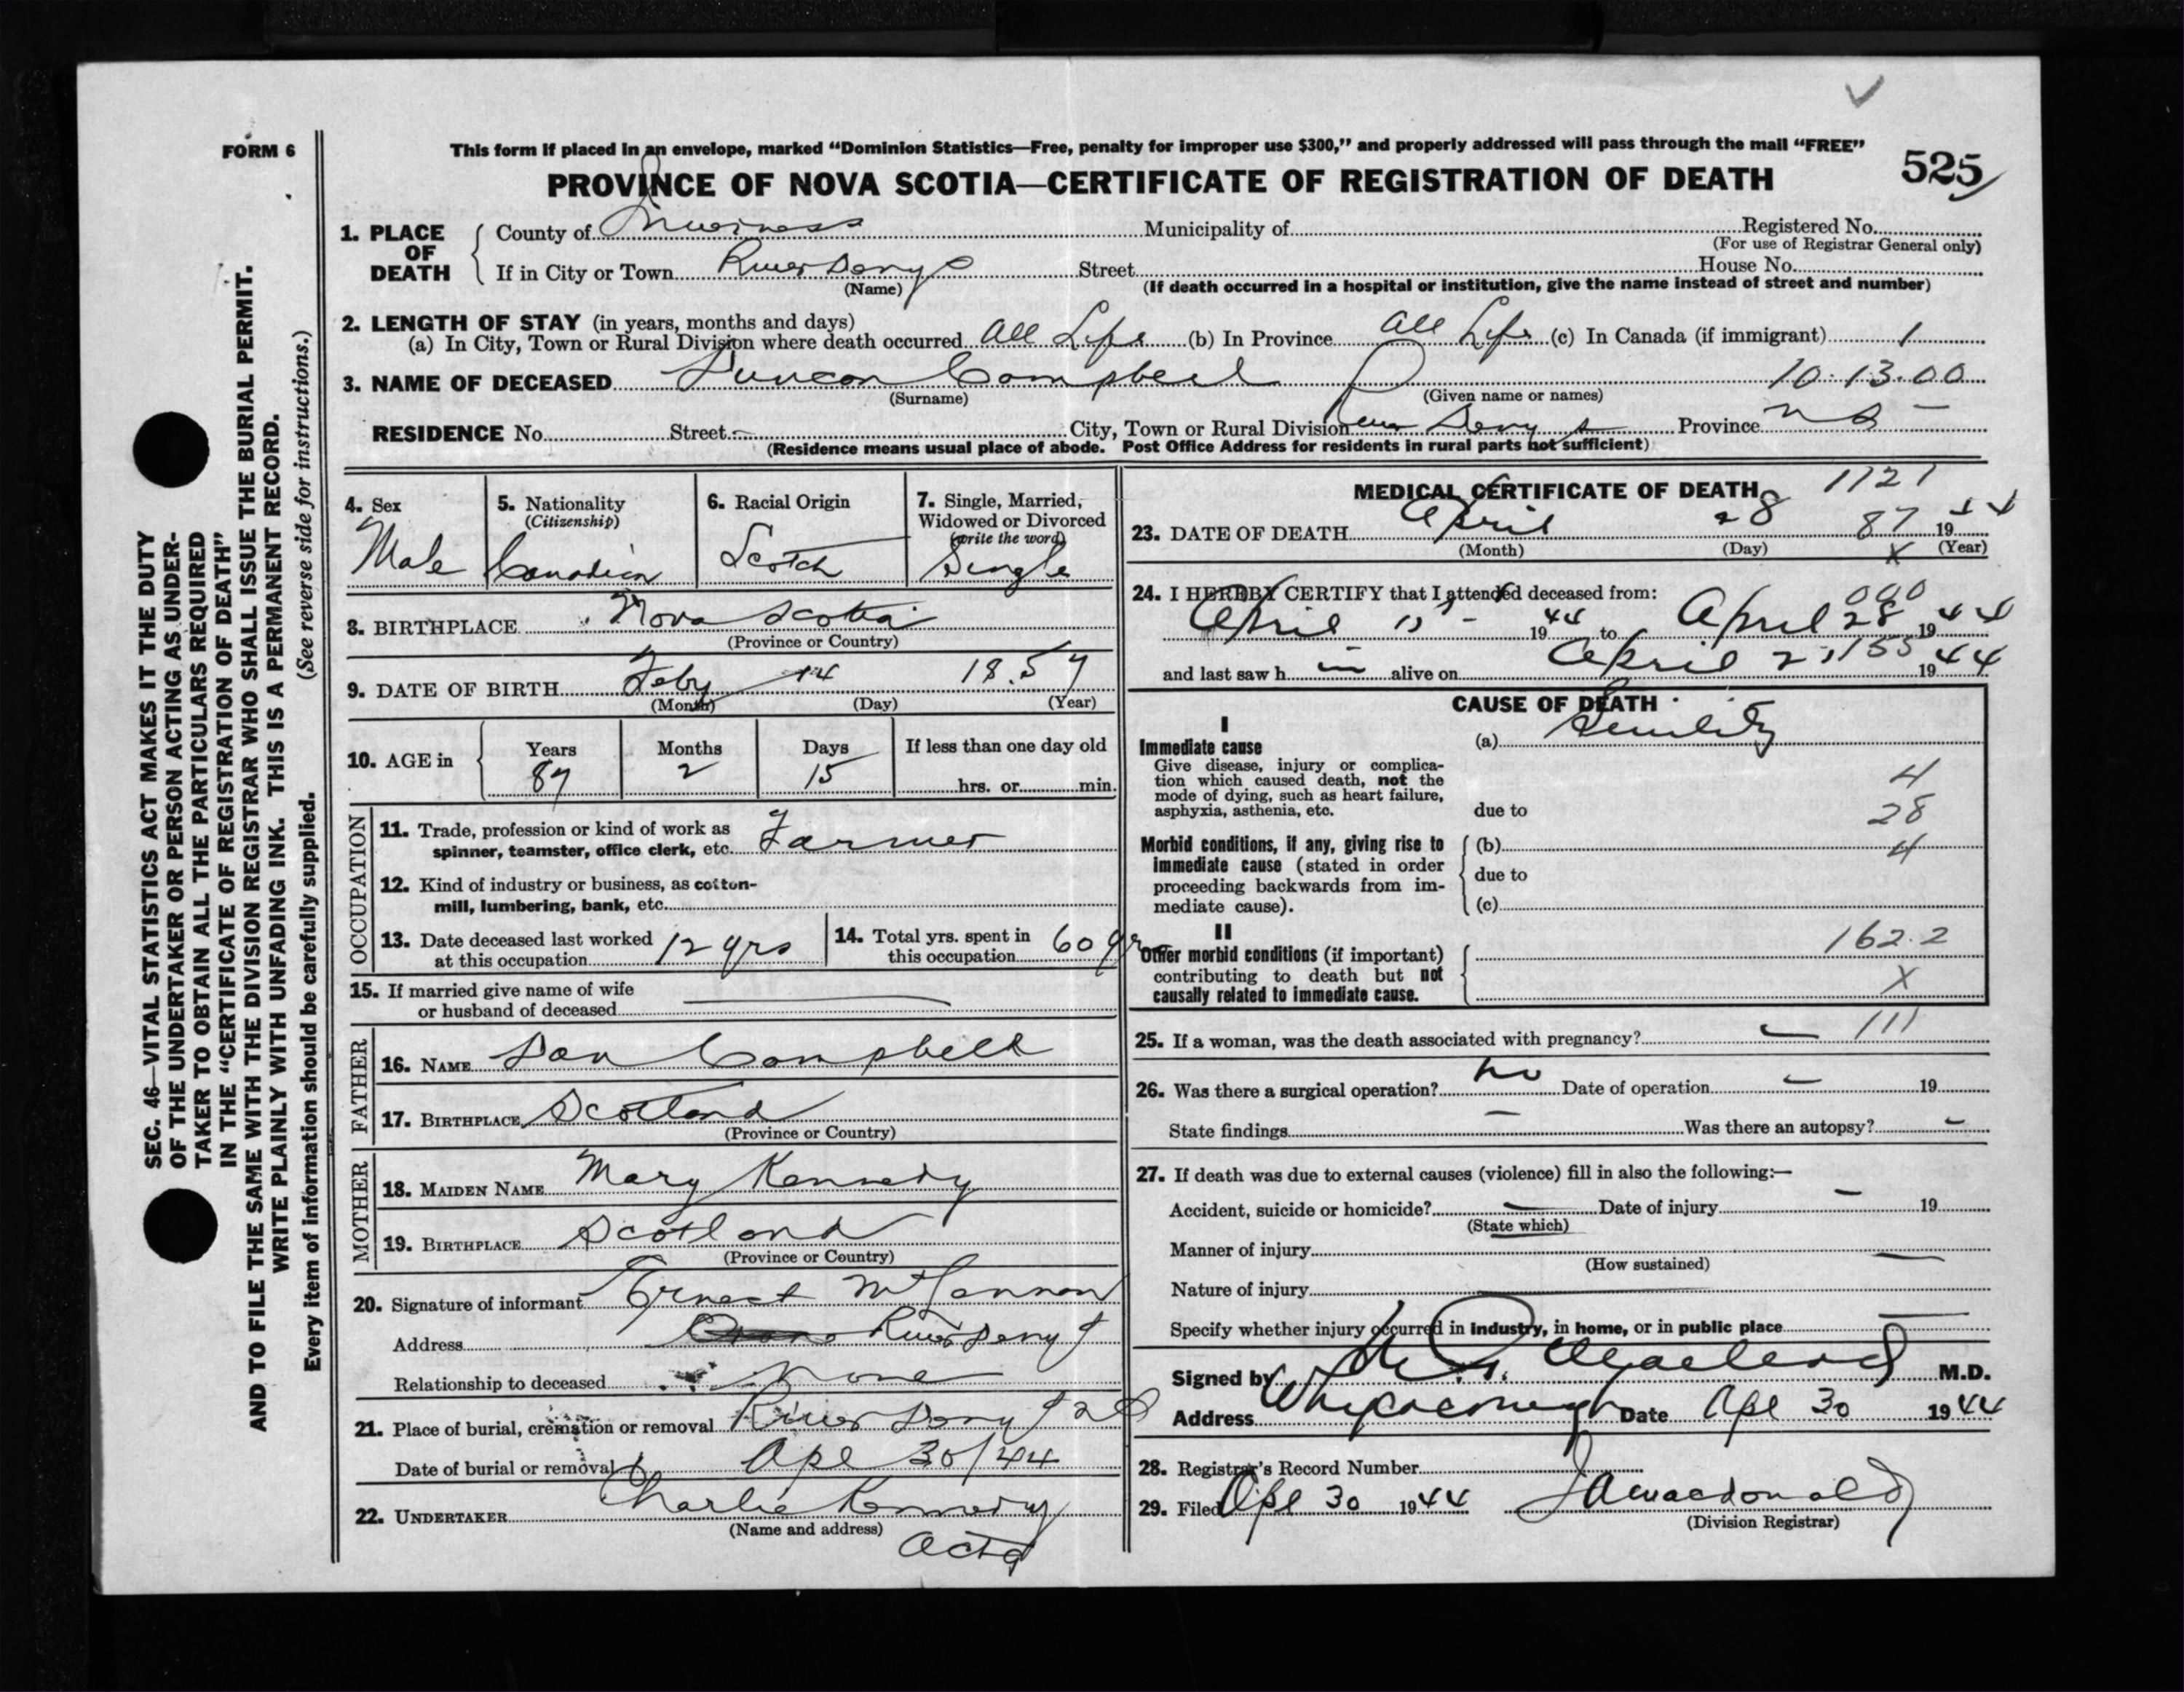 FORM 6
This form if placed in an envelope, marked “Dominion Statistics—Free, penalty for improper use $300,” and properly addressed will pass through the mail “FREE”
PROVINCE OF NOVA SCOTIA—CERTIFICATE OF REGISTRATION OF DEATH
525
1. PLACE OF DEATH
County of Inverness Municipality of Registered No.
(For use of Registrar General only)
If in City or Town River Denys Street House No.
(Name) (If death occurred in a hospital or institution, give the name instead of street and number)
2. LENGTH OF STAY (in years, months and days)
(a) In City, Town or Rural Division where death occurred All Life (b) In Province All Life (c) In Canada (if immigrant) 1
3. NAME OF DECEASED Duncan Campbell 10.13.00
(Surname) (Given name or names)
RESIDENCE No. Street City, Town or Rural Division River Denys Province N S
(Residence means usual place of abode. Post Office Address for residents in rural parts not sufficient)
4. Sex
Male
5. Nationality
(Citizenship)
Canadian
6. Racial Origin
Scotch
7. Single, Married, Widowed or Divorced
(write the word)
Single
8. BIRTHPLACE Nova Scotia
(Province or Country)
9. DATE OF BIRTH Feby 14 1857
(Month) (Day) (Year)
10. AGE in
Years Months Days If less than one day old
87 2 15 hrs. or min.
OCCUPATION
11. Trade, profession or kind of work as
spinner, teamster, office clerk, etc. Farmer
12. Kind of industry or business, as cotton-
mill, lumbering, bank, etc.
13. Date deceased last worked
at this occupation 12 yrs
14. Total yrs. spent in
this occupation 60 yrs
15. If married give name of wife
or husband of deceased
FATHER
16. NAME Dan Campbell
17. BIRTHPLACE Scotland
(Province or Country)
MOTHER
18. MAIDEN NAME Mary Kennedy
19. BIRTHPLACE Scotland
(Province or Country)
20. Signature of informant Ernest
Address River Denys
Relationship to deceased None
21. Place of burial, cremation or removal River Denys
Date of burial or removal Apl 30/44
22. UNDERTAKER Charlie Kennedy
(Name and address)
MEDICAL CERTIFICATE OF DEATH 1121
23. DATE OF DEATH April 28 87 1944
(Month) (Day) X (Year)
24. I HEREBY CERTIFY that I attended deceased from: 000
April 15 - 1944 to April 28 1944
and last saw h im alive on April 1944
CAUSE OF DEATH
I
Immediate cause
Give disease, injury or complica-
tion which caused death, not the
mode of dying, such as heart failure,
asphyxia, asthenia, etc.
(a) Senility
4
due to 28
Morbid conditions, if any, giving rise to
immediate cause (stated in order
proceeding backwards from im-
mediate cause).
(b) 4
due to
(c)
II
Other morbid conditions (if important)
contributing to death but not
causally related to immediate cause.
162.2
X
25. If a woman, was the death associated with pregnancy? — 111
26. Was there a surgical operation? no Date of operation — 19
State findings — Was there an autopsy? —
27. If death was due to external causes (violence) fill in also the following:—
Accident, suicide or homicide? — Date of injury — 19
(State which)
Manner of injury —
(How sustained)
Nature of injury
Specify whether injury occurred in industry, in home, or in public place —
Signed by M.D.
Address Whycocomagh Date Apl 30 1944
28. Registrar's Record Number
29. Filed Apl 30 1944 J A Macdonald
(Division Registrar)
SEC. 46—VITAL STATISTICS ACT MAKES IT THE DUTY
OF THE UNDERTAKER OR PERSON ACTING AS UNDER-
TAKER TO OBTAIN ALL THE PARTICULARS REQUIRED
IN THE “CERTIFICATE OF REGISTRATION OF DEATH”
AND TO FILE THE SAME WITH THE DIVISION REGISTRAR WHO SHALL ISSUE THE BURIAL PERMIT.
WRITE PLAINLY WITH UNFADING INK. THIS IS A PERMANENT RECORD.
Every item of information should be carefully supplied. (See reverse side for instructions.)